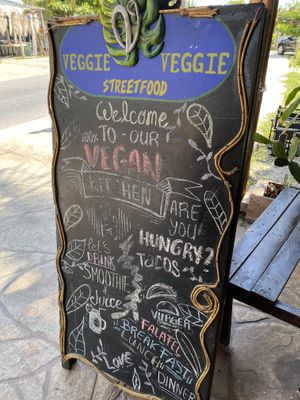 VEGGIE VEGGIE
STREETFOOD
Welcome
100% TO - OUR
VEGAN
KITCHEN
ARE
YOU
HUNGRY?
let's
DRINK
SMOOTHIE
Juice
Tacos
VURGER
FALAFEL
BREAKFAST
LUNCH
DINNER
LOVE